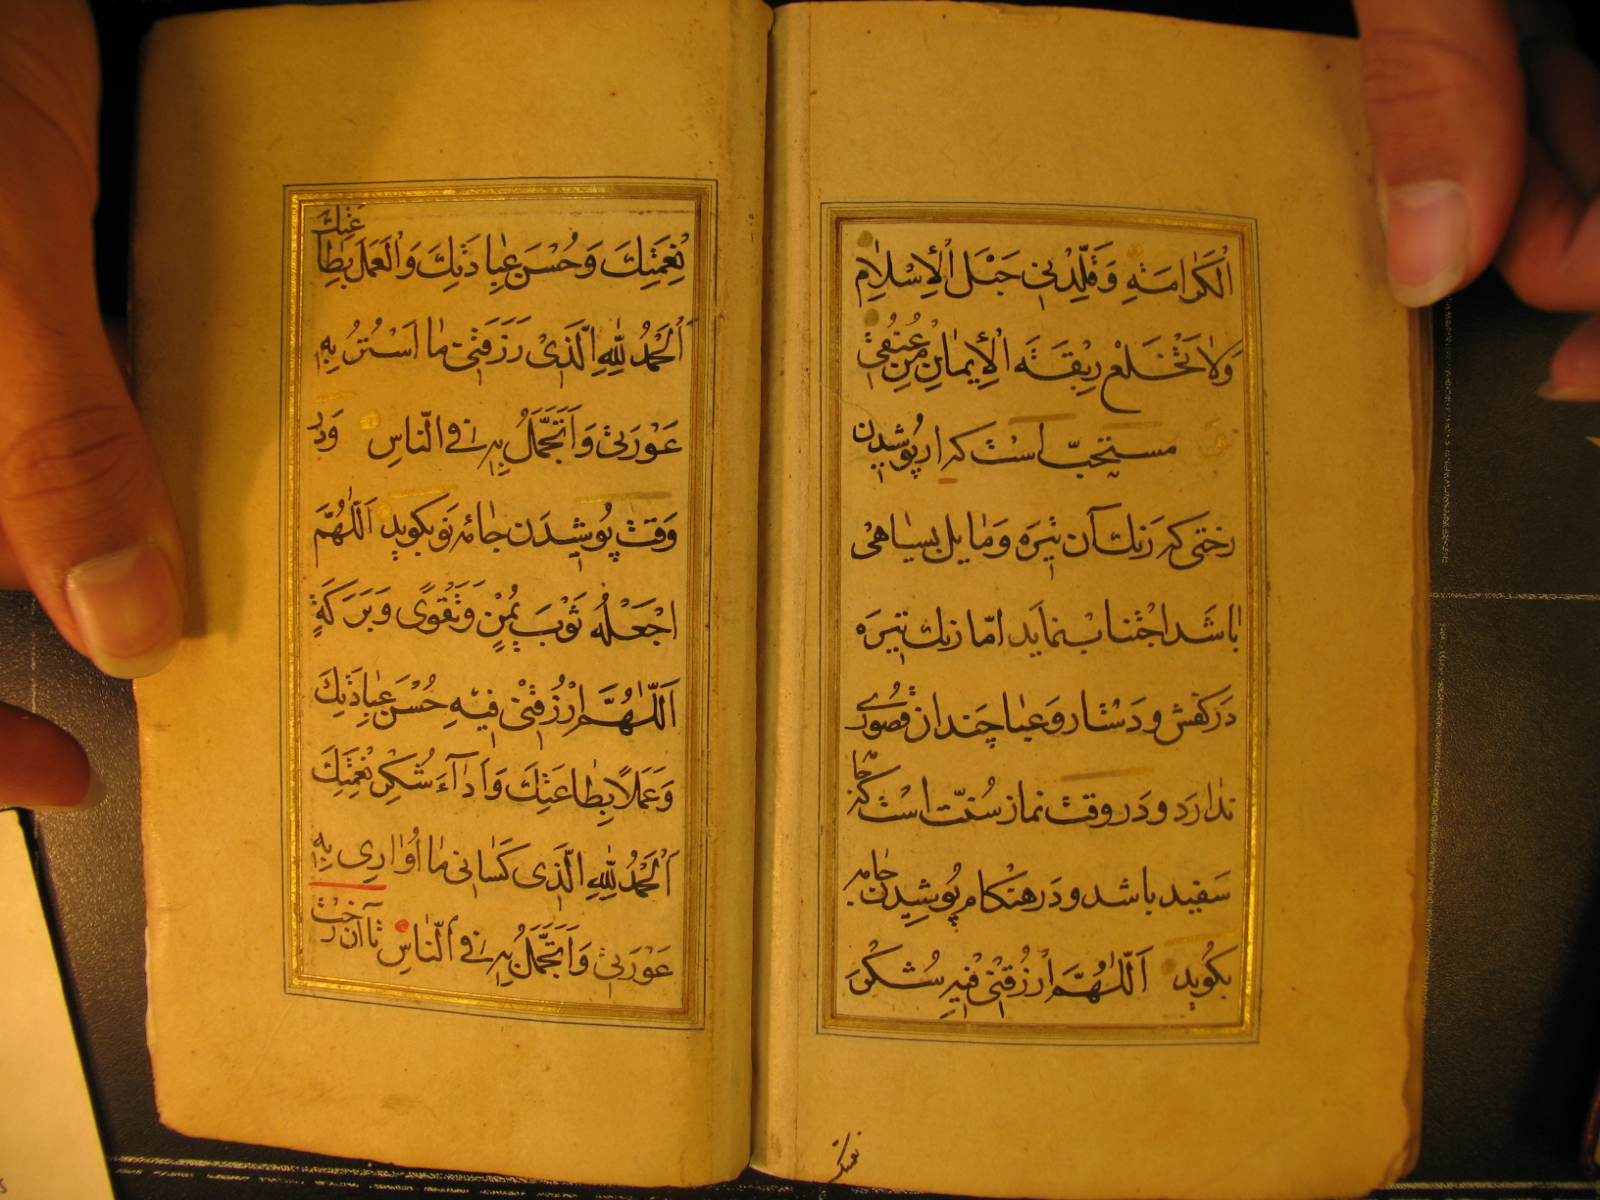 الْكَرٰامَةِ وَقَلِّدْنِی حَبْلَ الْاِسْلٰامِ
وَلٰا تَخْلَعْ رِبْقَةَ الْاِیمٰانِ مِنْ عُنُقِی
مستحبّ است که از پُوشیدن
رختی که رَنك آن تیرَه وَمٰایل بسیٰاهی
بٰاشَد اجْتنابْ نمٰایَد امّا رنك تیرَه
دَر کفش و دَستٰار وعَبٰا چَندان قصُوری
ندٰارَد و دَر وقت نماز سُنّت است که جٰا
سَفید باشد و دَر هنکام پُوشیدن جٰامه
بکُوید اَللّٰهُمَّ ارْزُقْنِی فیهِ شُکْرَ
نعمتك
نِعْمَتِكَ وَحُسْنَ عِبٰادَتِكَ وَالْعَمَلَ بِطٰاعَتِكَ
اَلْحَمْدُ لِلّٰهِ الَّذِیْ رَزَقَنِیْ مٰا اَسْتُرُ بِهِ
عَوْرَتِیْ وَاَتَجَمَّلُ بِهِ فِی النّٰاسِ وَدر
وَقت پُوشِیدَن جٰامَٔه نَو بکوید اَللّٰهُمَّ
اجْعَلْهُ ثَوْبَ یُمْنٍ وَتَقْوًی وَبَرَکَةٍ
اَللّٰهُمَّ ارْزُقْنِیْ فِیهِ حُسْنَ عِبٰادَتِكَ
وَعَمَلًا بِطٰاعَتِكَ وَاَدٰآءَ شُکْرِ نِعْمَتِكَ
اَلْحَمْدُ لِلّٰهِ الَّذِی کَسٰانِی مٰا اُوٰارِی بِهِ
عَوْرَتِیْ وَاَتَجَمَّلُ بِهِ فِی النّٰاسِ تٰا آن رخت